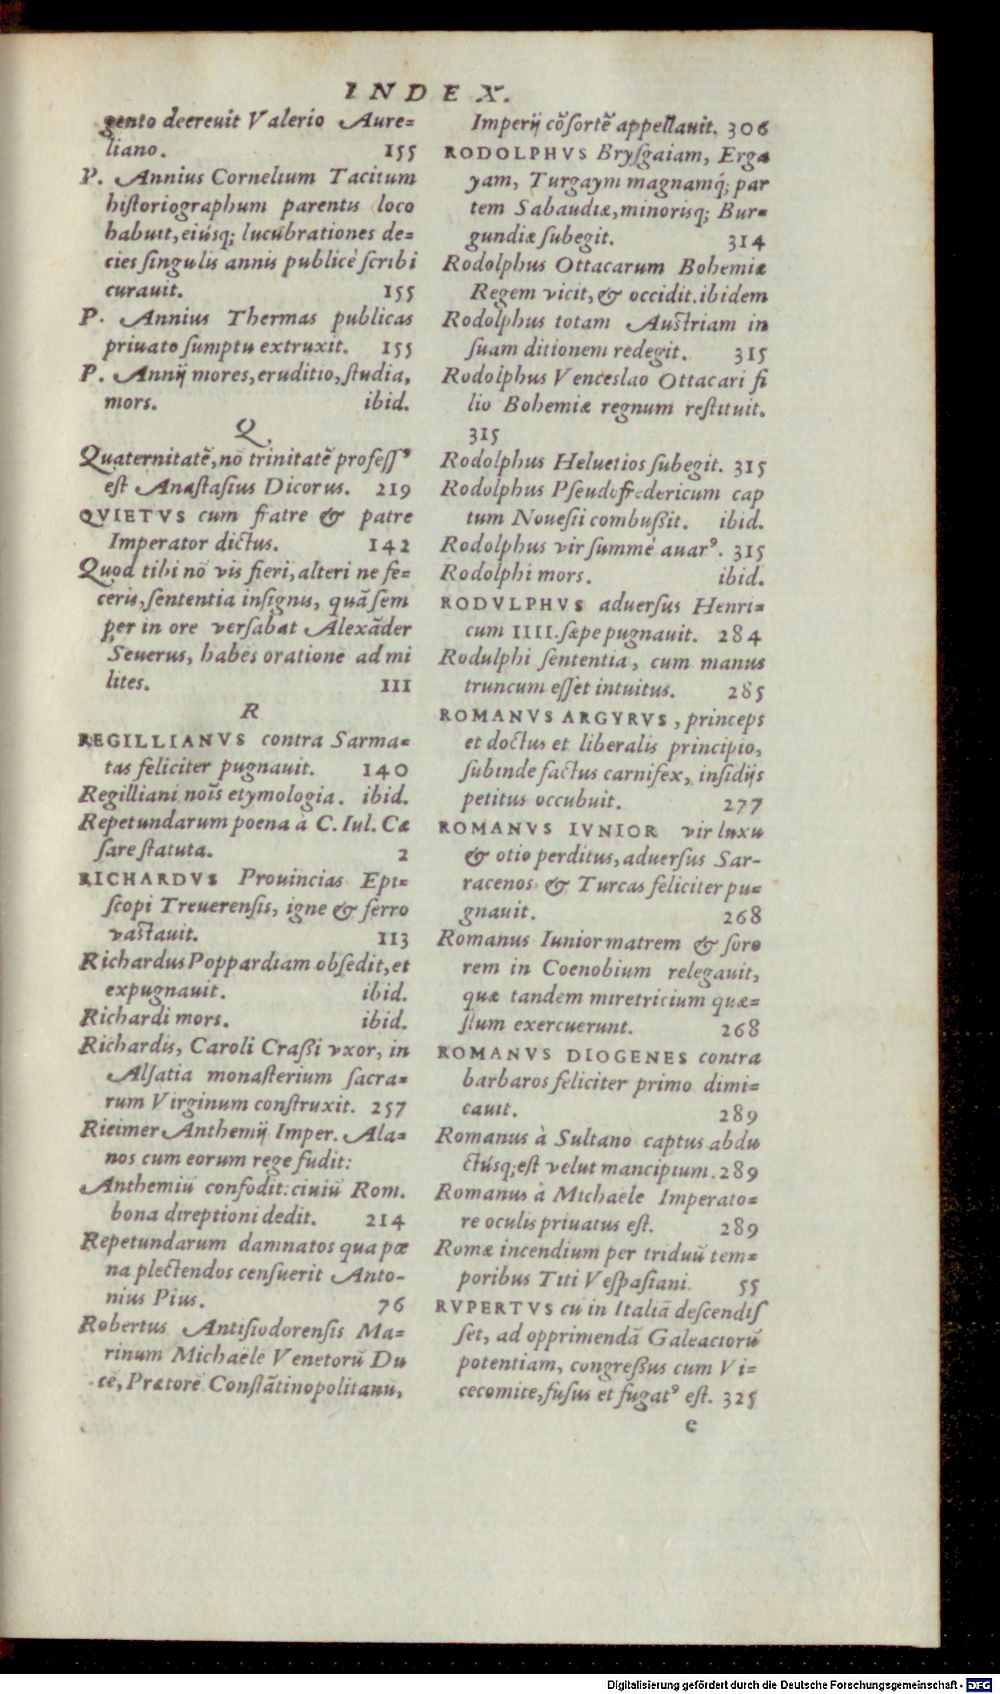 INDEX.
gento decreuit Valerio Aure=
liano. 155
P. Annius Cornelium Tacitum
hiſtoriographum parentis loco
habuit, eiúsq; lucubrationes de=
cies ſingulis annis publicè ſcribi
curauit. 155
P. Annius Thermas publicas
priuato ſumptu extruxit. 155
P. Annij mores, eruditio, ſtudia,
mors. ibid.
Q
Quaternitatē, nō trinitatē profeſſꝰ
eſt Anaſtaſius Dicorus. 219
QVIETVS cum fratre & patre
Imperator dictus. 142
Quod tibi nō vis fieri, alteri ne fe=
ceris, ſententia inſignis, quā ſem
per in ore verſabat Alexāder
Seuerus, habēs oratione ad mi
lites. 111
R
REGILLIANVS contra Sarma=
tas feliciter pugnauit. 140
Regilliani noīs etymologia. ibid.
Repetundarum poena à C. Iul. Cæ
ſare ſtatuta. 2
RICHARDVS Prouincias Epi=
ſcopi Treuerenſis, igne & ferro
vaſtauit. 113
Richardus Poppardiam obſedit, et
expugnauit. ibid.
Richardi mors. ibid.
Richardis, Caroli Craßi vxor, in
Alſatia monaſterium ſacra=
rum Virginum conſtruxit. 257
Ricimer Anthemij Imper. Ala=
nos cum eorum rege fudit:
Anthemiū confodit: ciuiū Rom.
bona direptioni dedit. 214
Repetundarum damnatos qua pœ
na plectendos cenſuerit Anto-
nius Pius. 76
Robertus Antiſiodorenſis Ma=
rinum Michaële Venetorū Du
cē, Prætorē Conſtātinopolitanū,
Imperij cōſortē appellauit. 306
RODOLPHVS Bryſgaiam, Erga
yam, Turgaym magnamq́; par
tem Sabaudiæ, minorisq; Bur=
gundiæ ſubegit. 314
Rodolphus Ottacarum Bohemiæ
Regem vicit, & occidit. ibidem
Rodolphus totam Auſtriam in
ſuam ditionem redegit. 315
Rodolphus Venceslao Ottacari fi
lio Bohemiæ regnum reſtituit.
315
Rodolphus Heluetios ſubegit. 315
Rodolphus Pſeudofredericum cap
tum Noueſii combußit. ibid.
Rodolphus vir ſummè auarꝰ. 315
Rodolphi mors. ibid.
RODVLPHVS aduerſus Henri=
cum IIII. ſæpe pugnauit. 284
Rodulphi ſententia, cum manus
truncum eſſet intuitus. 285
ROMANVS ARGYRVS, princeps
et doctus et liberalis principio,
ſubinde factus carnifex, inſidijs
petitus occubuit. 277
ROMANVS IVNIOR vir luxu
& otio perditus, aduerſus Sar-
racenos & Turcas feliciter pu=
gnauit. 268
Romanus Iunior matrem & ſoro
rem in Coenobium relegauit,
quæ tandem miretricium quæ=
ſtum exercuerunt. 268
ROMANVS DIOGENES contra
barbaros feliciter primo dimi=
cauit. 289
Romanus à Sultano captus abdu
ctúsq; eſt velut mancipium. 289
Romanus à Michaële Imperato=
re oculis priuatus eſt. 289
Romæ incendium per triduū tem=
poribus Titi Veſpaſiani. 55
RVPERTVS cū in Italiā deſcendiſ
ſet, ad opprimendā Galeaciorū
potentiam, congreßus cum Vi=
cecomite, fuſus et fugatꝰ eſt. 325
e
Digitalisierung gefördert durch die Deutsche Forschungsgemeinschaft - DFG